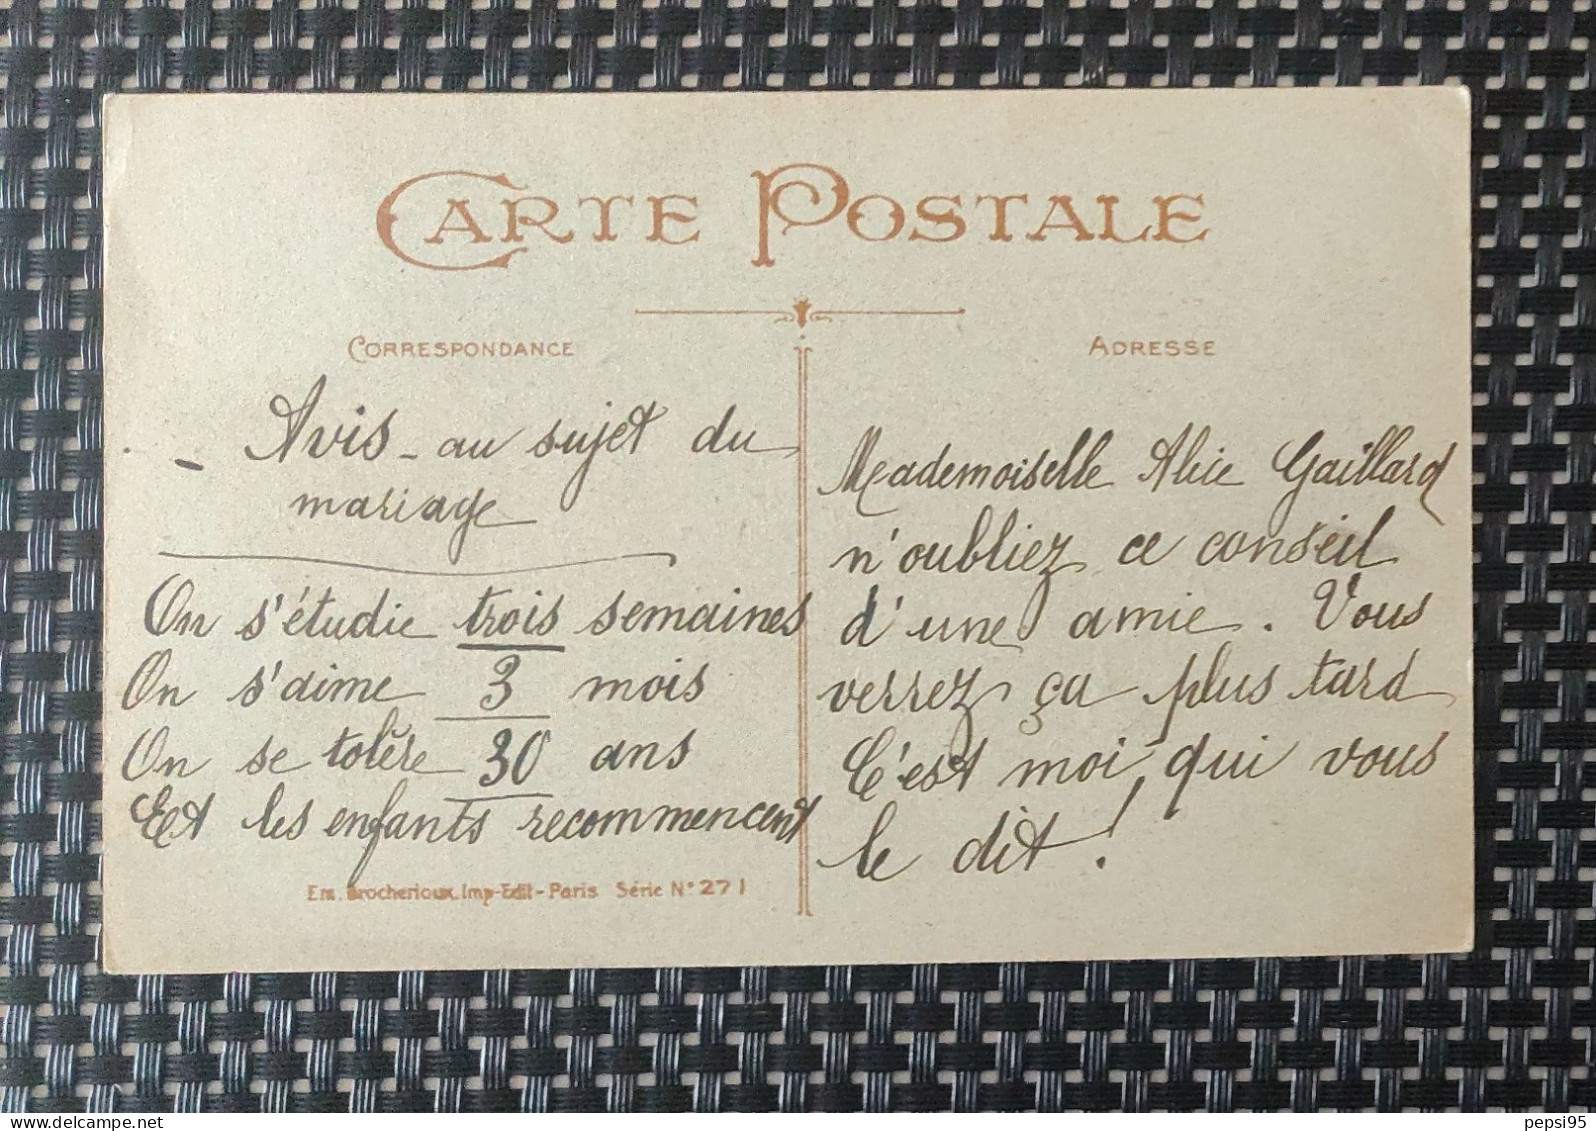 CARTE POSTALE
CORRESPONDANCE
ADRESSE
- Avis - au sujet du
mariage
On s'étudie trois semaines
On s'aime 3 mois
On se tolère 30 ans
Et les enfants recommencent
Em. Brocherioux. Imp-Edit-Paris Série N° 271
Mademoiselle Alice Gaillard
n'oubliez ce conseil
d'une amie. Vous
verrez ça plus tard
C'est moi, qui vous
le dit !
pepsi95